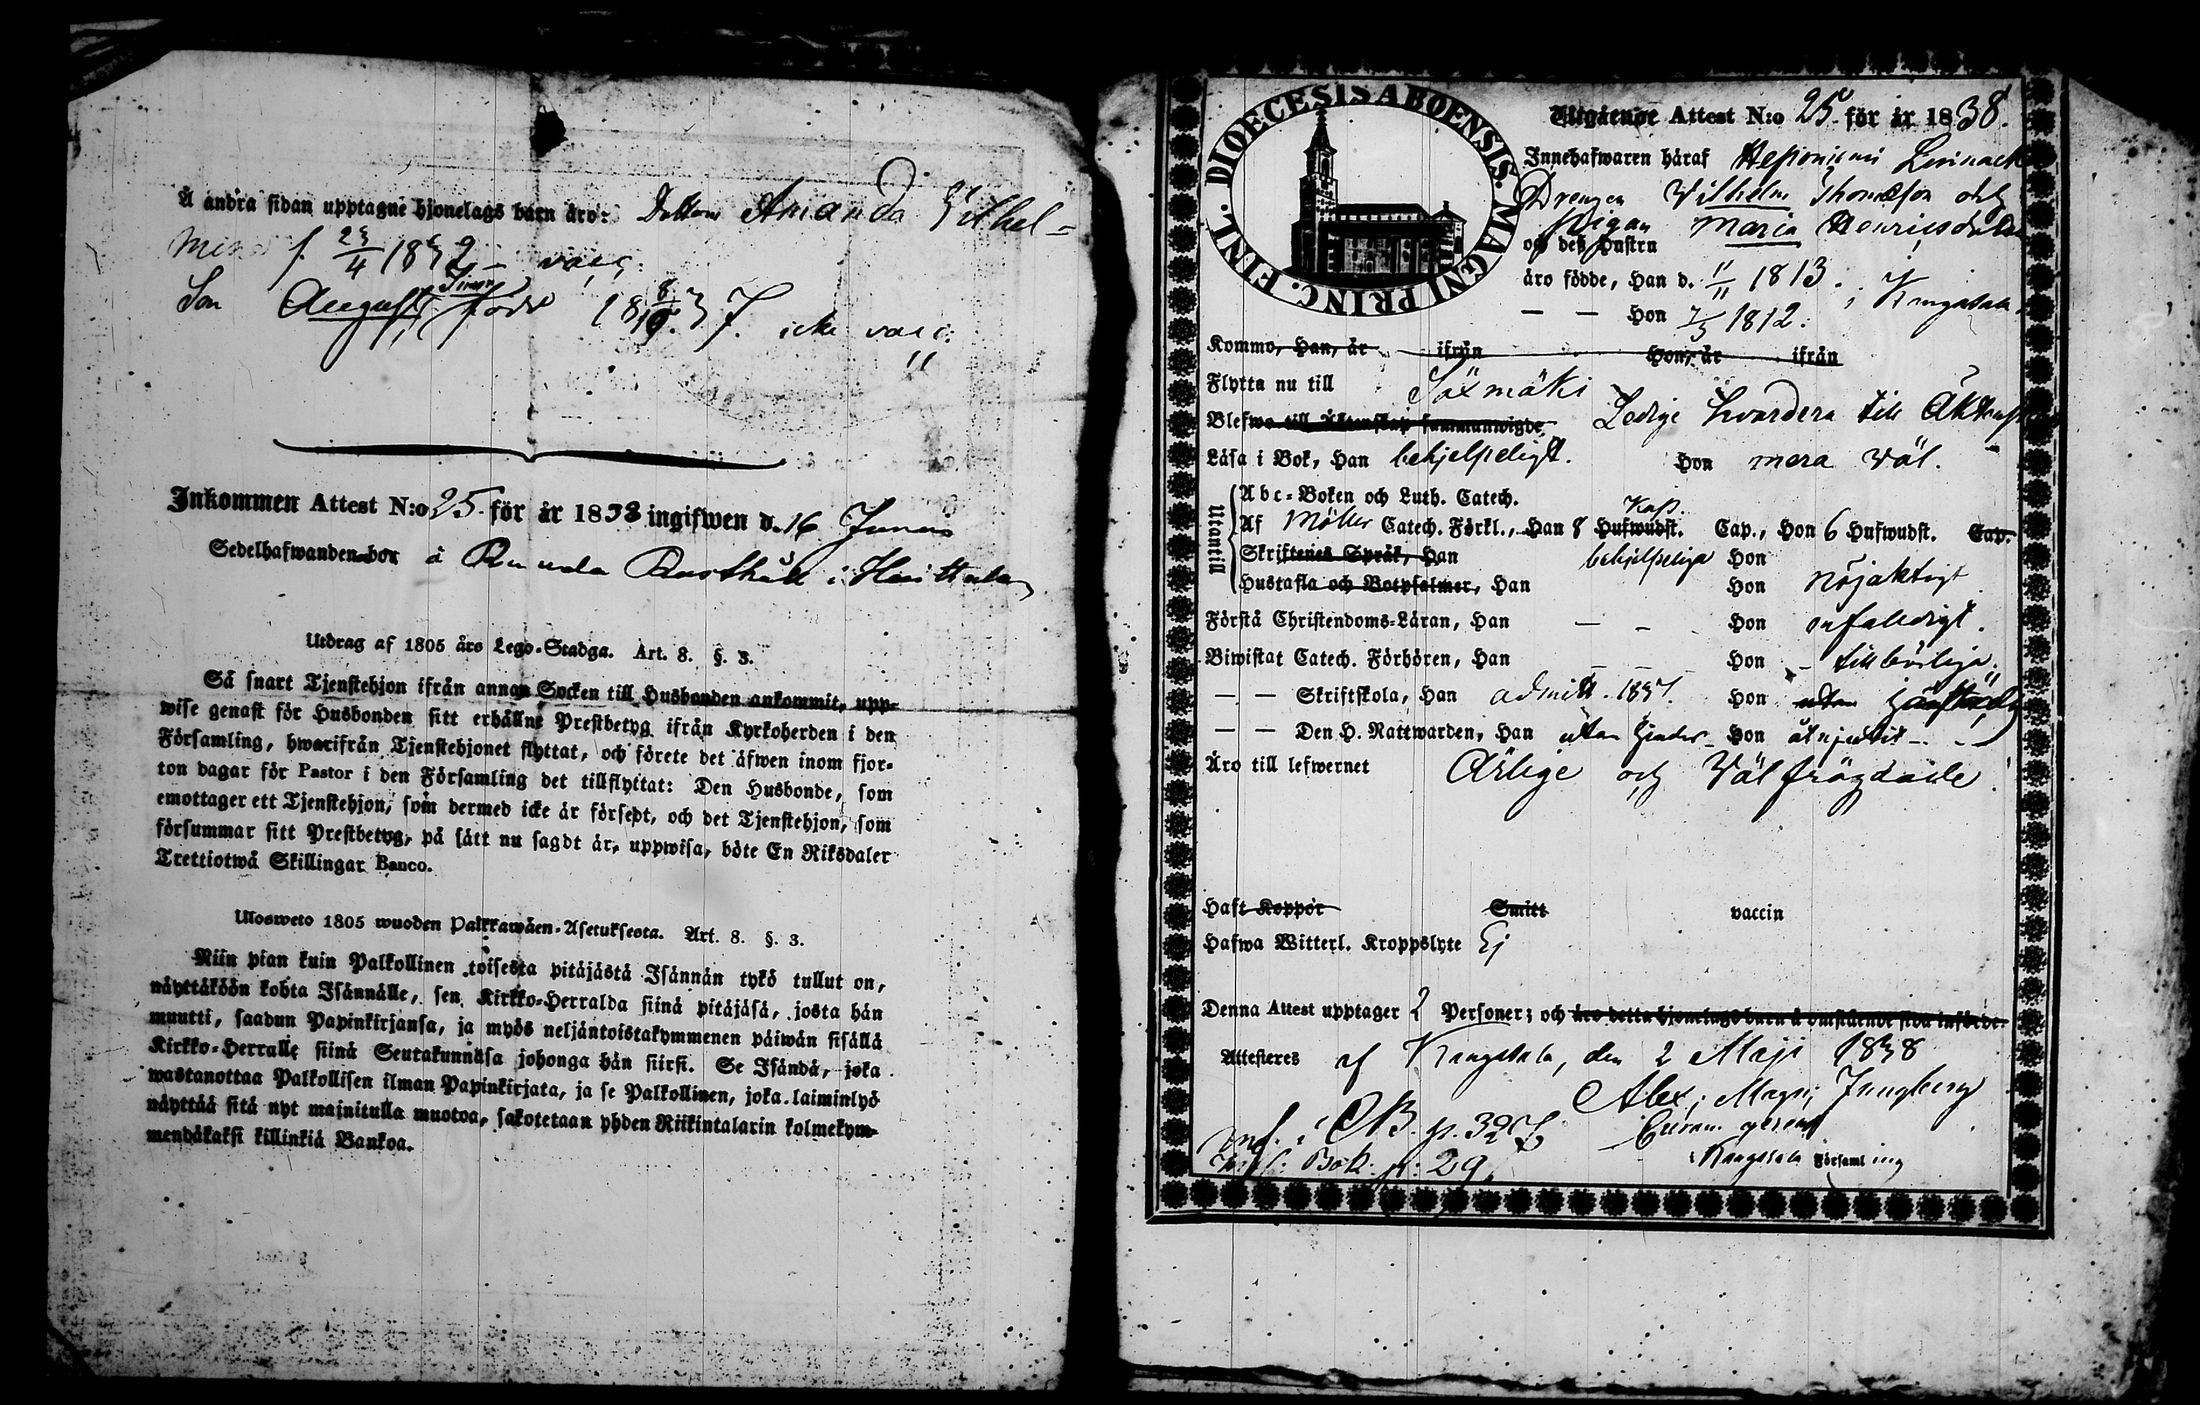 Å andra sidan upptagne hjonelags barn äro: Dottern Amanda Vilhel=
mina f. 23/4 1832 vacc.
Son August född 18 8/10 37. icke vacc:
Inkommen Attest N:o 25. för år 1838 ingifwen d. 16 Junii
Sedelhafwanden bor å Rusthåll i Huittula
Utdrag af 1805 års Lego-Stadga. Art. 8. §. 3.
Så snart Tjenstehjon ifrån annan Socken till Husbonden ankommit, upp-
wise genast för Husbonden sitt erhållne Prestbetyg ifrån Kyrkoherden i den
Församling, hwarifrån Tjenstehjonet flyttat, och förete det äfwen inom fjor-
ton dagar för Pastor i den Församling det tillflyttat: Den Husbonde, som
emottager ett Tjenstehjon, som dermed icke är försedt, och det Tjenstehjon, som
försummar sitt Prestbetyg, på sätt nu sagdt är, uppwisa, böte En Riksdaler
Trettiotwå Skillingar Banco.
Ulosweto 1805 wuoden Palkkawäen-Asetuksesta. Art. 8. §. 3.
Niin pian kuin Palkollinen toisesta pitäjästä Isännän tykö tullut on,
näyttäköön kohta Isännälle, sen Kirkko-Herralda siinä pitäjäsä, josta hän
muutti, saadun Papinkirjansa, ja myös neljäntoistakymmenen päiwän sisällä
Kirkko-Herralle siinä Seurakunnasa johonga hän siirsi. Se Isändä, joka
wastanottaa Palkollisen ilman Papinkirjata, ja se Palkollinen, joka laiminlyö
näyttää sitä nyt mainitulla muotoa, sakotetaan yhden Riikintalarin kolmekym-
mendäkaksi killinkiä Bankoa.
DIOECESIS ABOENSIS. MAGNI PRINC. FINL.
Utgående Attest N:o 25 för år 1838.
Innehafwaren häraf
Drengen Vilhelm Thomæson och
Pigan Maria Henricsdotter
och deß Hustru
äro födde, Han d. 11/11 1813. i Kangasala
— — Hon 7/3 1812.
Kommo, Han, år ifrån Hon, år ifrån
Flytta nu till Säxmäki
Blefwo till Äktenskap sammanwigde Ledige hvardera till Äktenskap
Läsa i Bok, Han behjelpeligt. Hon mera väl.
Utantill
Abc-Boken och Luth. Catech.
Af Möller Catech. Förkl., Han 8 Hufwudst. Cap., Hon 6 Hufwudst. Cap.
Skriftenes Språk, Han behjelpeliga Hon
Hustafla och Botpsalmer, Han Hon nöjaktigt
Förstå Christendoms-Läran, Han — — Hon enfaldigt.
Biwistat Catech. Förhören, Han — — Hon tillbörliga.
— — Skriftskola, Han admitt. 1837. Hon
— — Den H. Nattwarden, Han utan hinder Hon åtnjutit
Äro till lefwernet Ärlige och Välfrägdade.
Haft Koppor Smitt vaccin
Hafwa Witterl. Kroppslyte Ej
Denna Attest upptager 2 Personer; och äro detta hjonelags barn å omstående sida införde.
Attesteres af Kangasala, den 2 Maji 1838
Alex: Magn: Ljungberg
i Kangasala Församling
Inf. i CB. p. 327
Infl. Bok. p. 29.